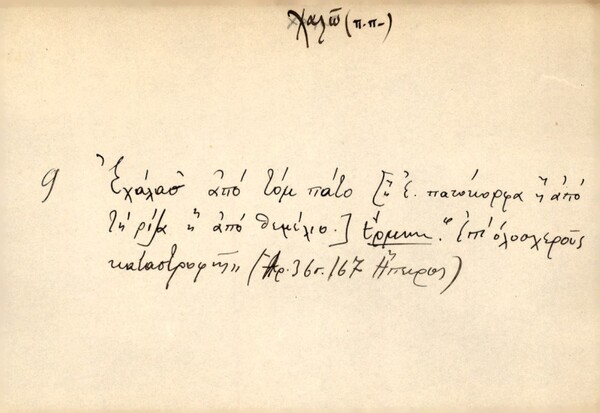 Χαλῶ (π.π-)
9 Ἐχάλασ' ἀπό τόμ πάτο [ἤ ἐ. πατόκορφα ἤ ἀπό
τή ρίζα ἤ ἀπό θεμέλιο.] Ἑρμην. "Ἐπί ὁλοσχεροῦς
καταστροφῆς" (Ἀρ. 36 π. 167 Ἤπειρος)